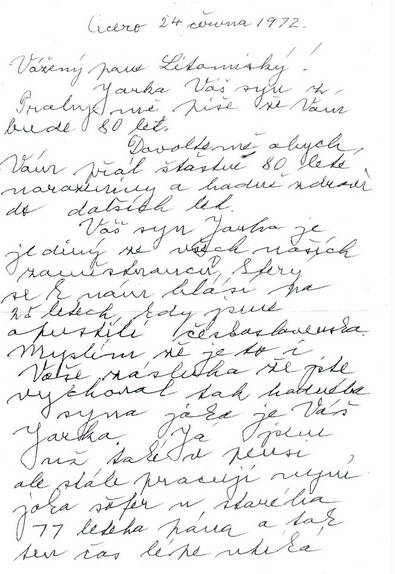 Cicero 24 června 1972.
Vážený pane Litomiský!
Jarka Váš syn z
Prahy mě píše že Vám
bude 80 let.
Dovolte mě abych
Vám přál štastné 80 leté
narozeniny a hodně zdraví
do dalších let.
Váš syn Jarka je
jediný ze všech našich
zaměstnanců, který
se k nám hlásí po
25 letech, kdy jsme
opustili Československo.
Myslím že je to i
Vaše zásluha že jste
vychoval tak hodného
syna jako je Váš
Jarka. Já jsem
už také v pensi
ale stále pracuji nyní
jako šofér u starého
77 letého pána a tak
ten čas lépe utíká